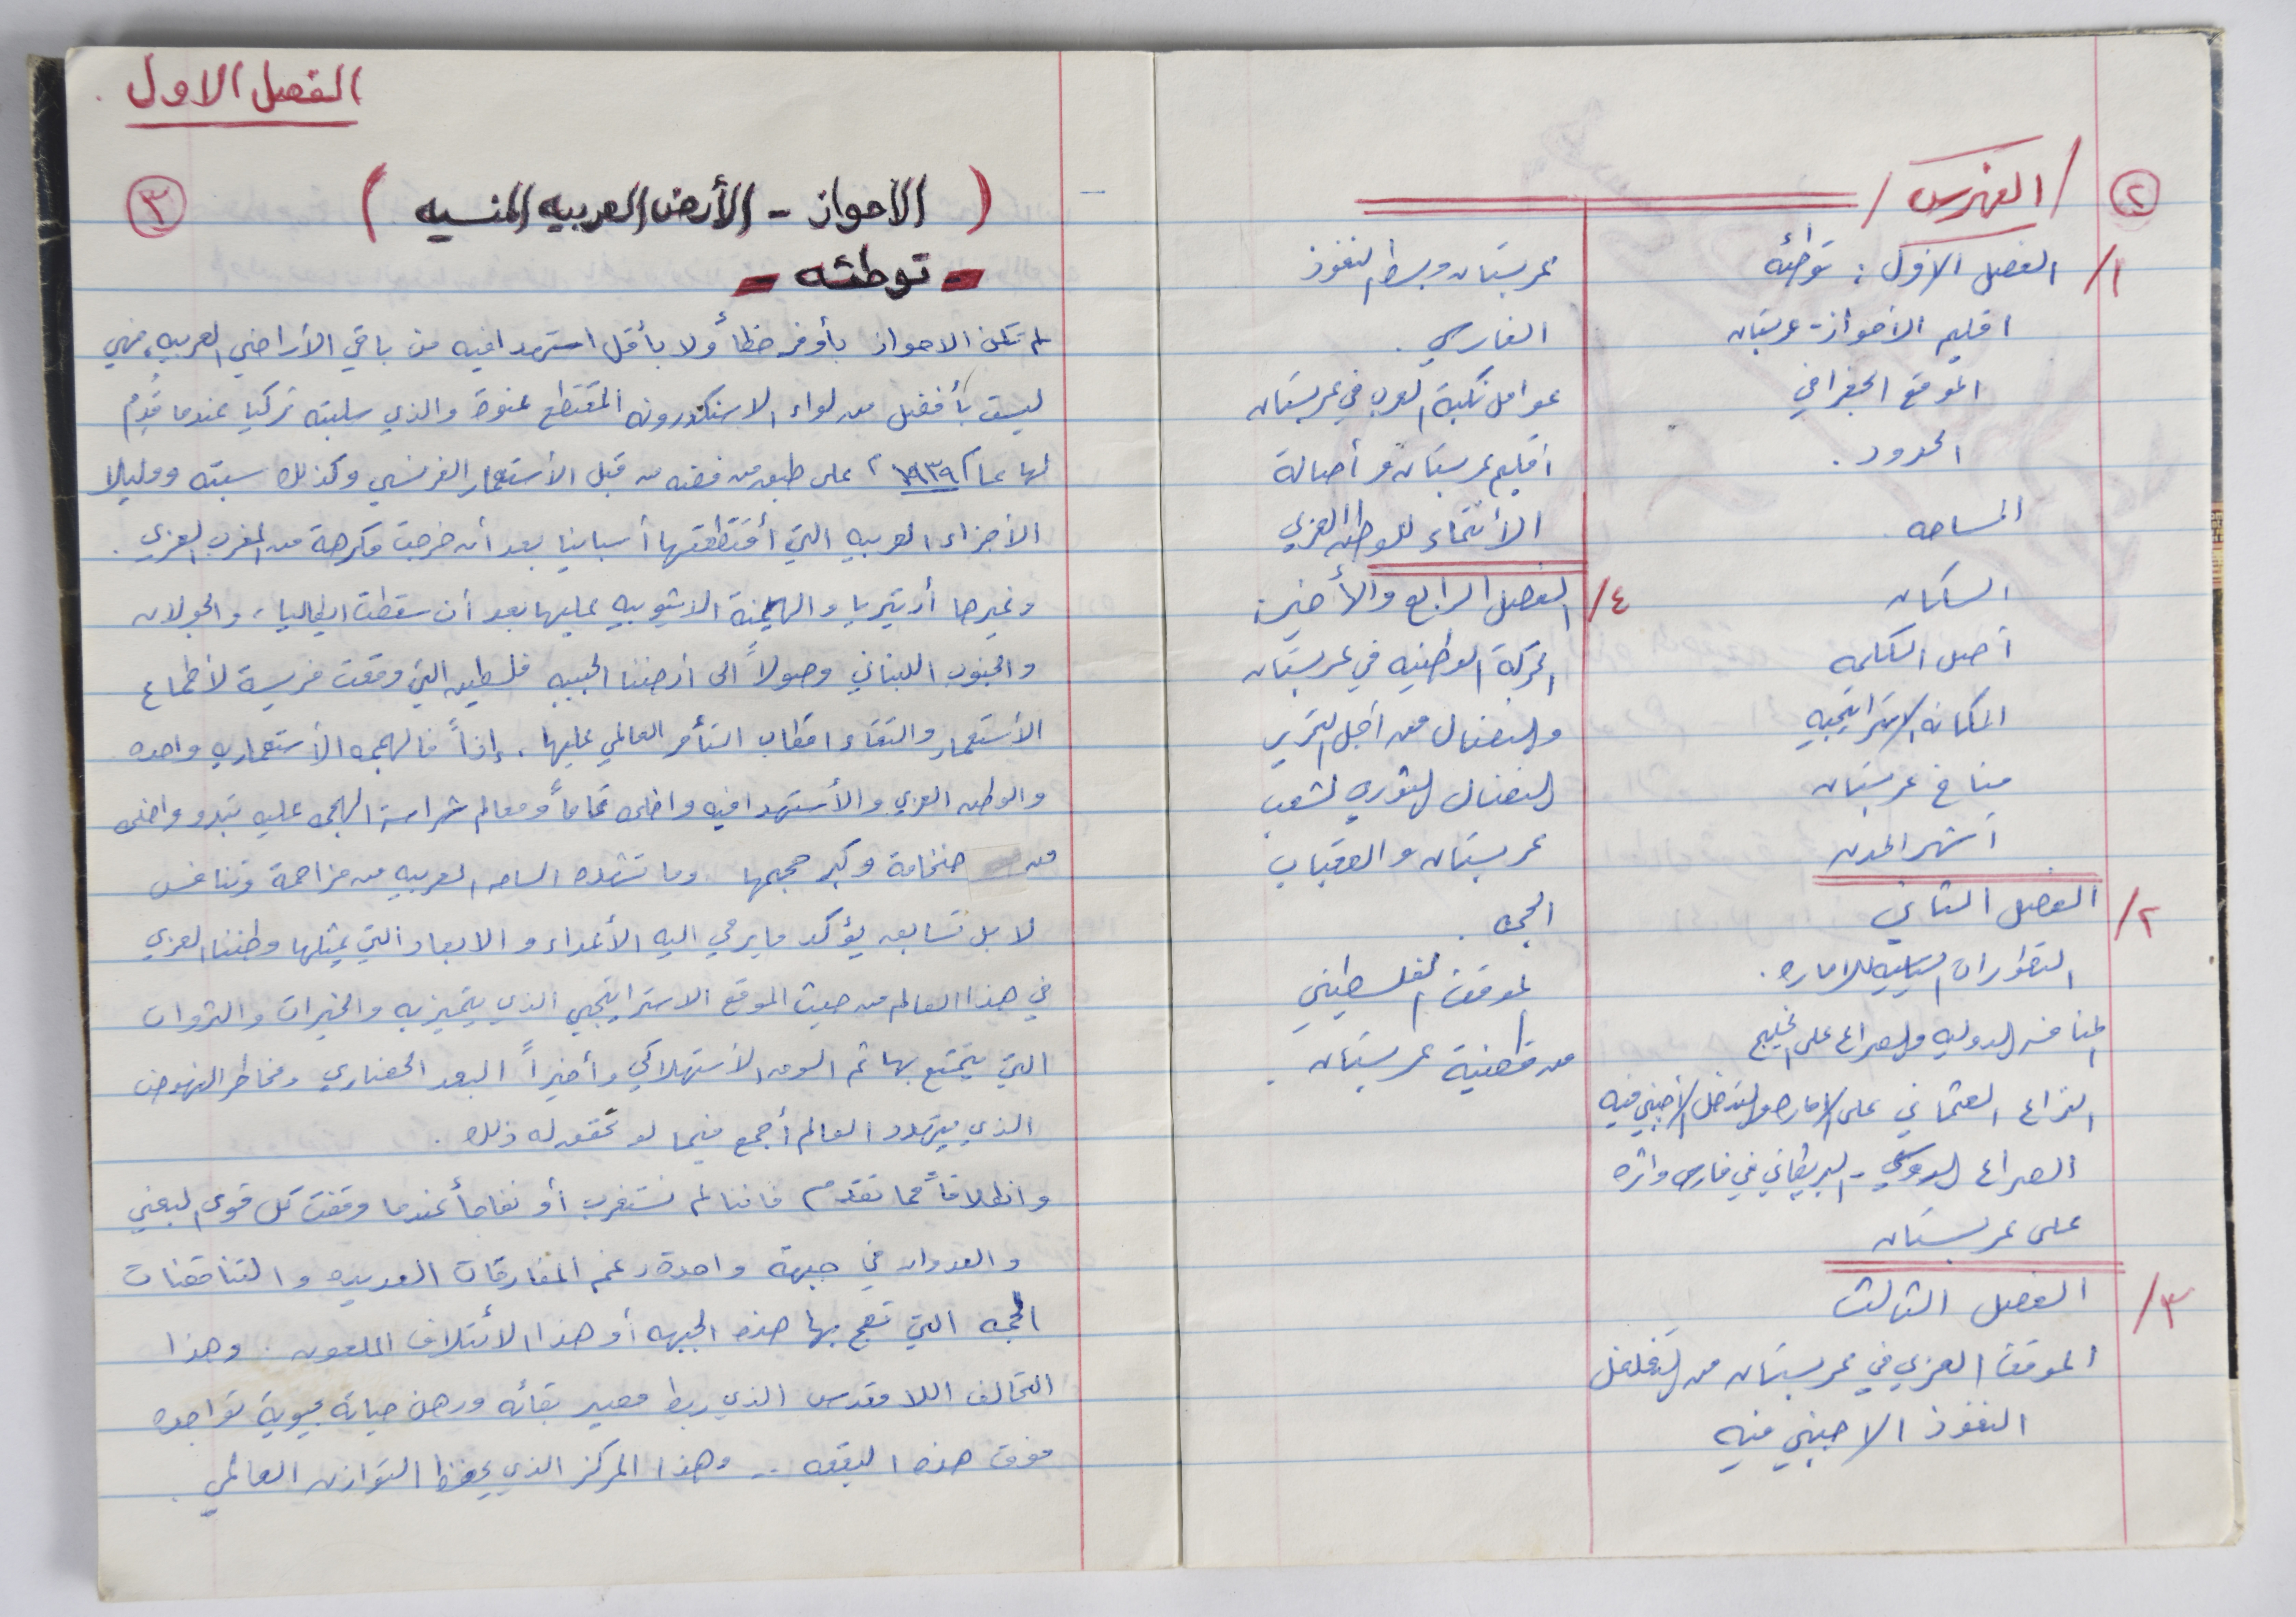 /الفهرس/
٢
١/ الفصل الاول : توطئه
اقليم الأحواز - عربستان
الموقع الجغرافي
الحدود .
المساحه
السكان
أصل الكلمه
المكانه الاستراتيجيه
مناخ عربستان
أشهر المدن
٢/ الفصل الثاني
التطورات السياسيه للاماره .
المنافسه الدوليه والصراع على الخليج
النزاع العثماني على الاماره والتدخل الاجنبي فيه
الصراع الروسي - البريطاني في فارس واثره
على عربستان
٣/ الفصل الثالث
الموقف العربي في عربستان من تغلغل
النفوذ الاجنبي فيه
عربستان وبسط النفوذ
الفارسي .
عوامل نكبة العرب في عربستان
أقليم عربستان وأصالة
الأنتماء للوطن العربي
٤/ الفصل الرابع والأخير :
الحركة الوطنيه في عربستان
والنضال من أجل التحرير
النضال الثوري لشعب
عربستان والعقبات
الجمه .
الموقف الفلسطيني
من قضية عربستان .
الفصل الاول .
٣
( الاحواز - الأرض العربيه المنسيه )
- توطئه -
لم تكن الاحواز بأوفر حظاً ولا بأقل استهدافيه من باقي الأراضي العربيه، فهي
ليست بأفضل من لواء الاسكندرونه المقتطع عنوة والذي سلبته تركيا عندما قُدِّم
لها عام ١٩٣٩ م على طبق من فضه من قبل الأستعمار الفرنسي وكذلك سبته ومليلا
الأجزاء العربيه التي أقتطعتها أسبانيا بعد أن خرجت مكرهة من المغرب العربي .
وغيرها أريتيريا والهيمنة الاثيوبيه عليها بعد أن سقطت ايطاليا ، والجولان
والجنوب اللبناني وصولاً الى أرضنا الحبيبه فلسطين التي وقعت فريسة لأطماع
الأستعمار والتقاء اقطاب التأمر العالمي عليها . إذاً فالهجمه الأستعماريه واحده
والوطن العربي والأستهدافيه واضحه تماماً ومعالم شراسة الهجمه عليه تبدو واضحه
من ضخامة وكبر حجمها وما تشهده الساحه العربيه من مزاحمة وتنافس
لا بل تسابق يؤكد ما يرمي اليه الأعداء والابعاد التي يمثلها وطننا العربي
في هذا العالم من حيث الموقع الاستراتيجي الذي يتميز به والخيرات والثروات
التي يتمتع بها ثم السوق الأستهلاكي وأخيراً البعد الحضاري ومخاطر النهوض
الذي يتهدد العالم أجمع فيما لو تحقق له ذلك .
وانطلاقاً مما تقدم فاننا لم نستغرب أو نفاجأ عندما وقفت كل قوى البغي
والعدوان في جبهة واحدة رغم المفارقات العديده والتناقضات
الجمه التي تعج بها هذه الجبهه أو هذا الأئتلاف الملعون . وهذا
التحالف اللا مقدس الذي ربط مصير بقائه ورهن حياته بحيوية تواجده
فوق هذه البقعه .. وهذا المركز الذي يحفظ التوازن العالمي .